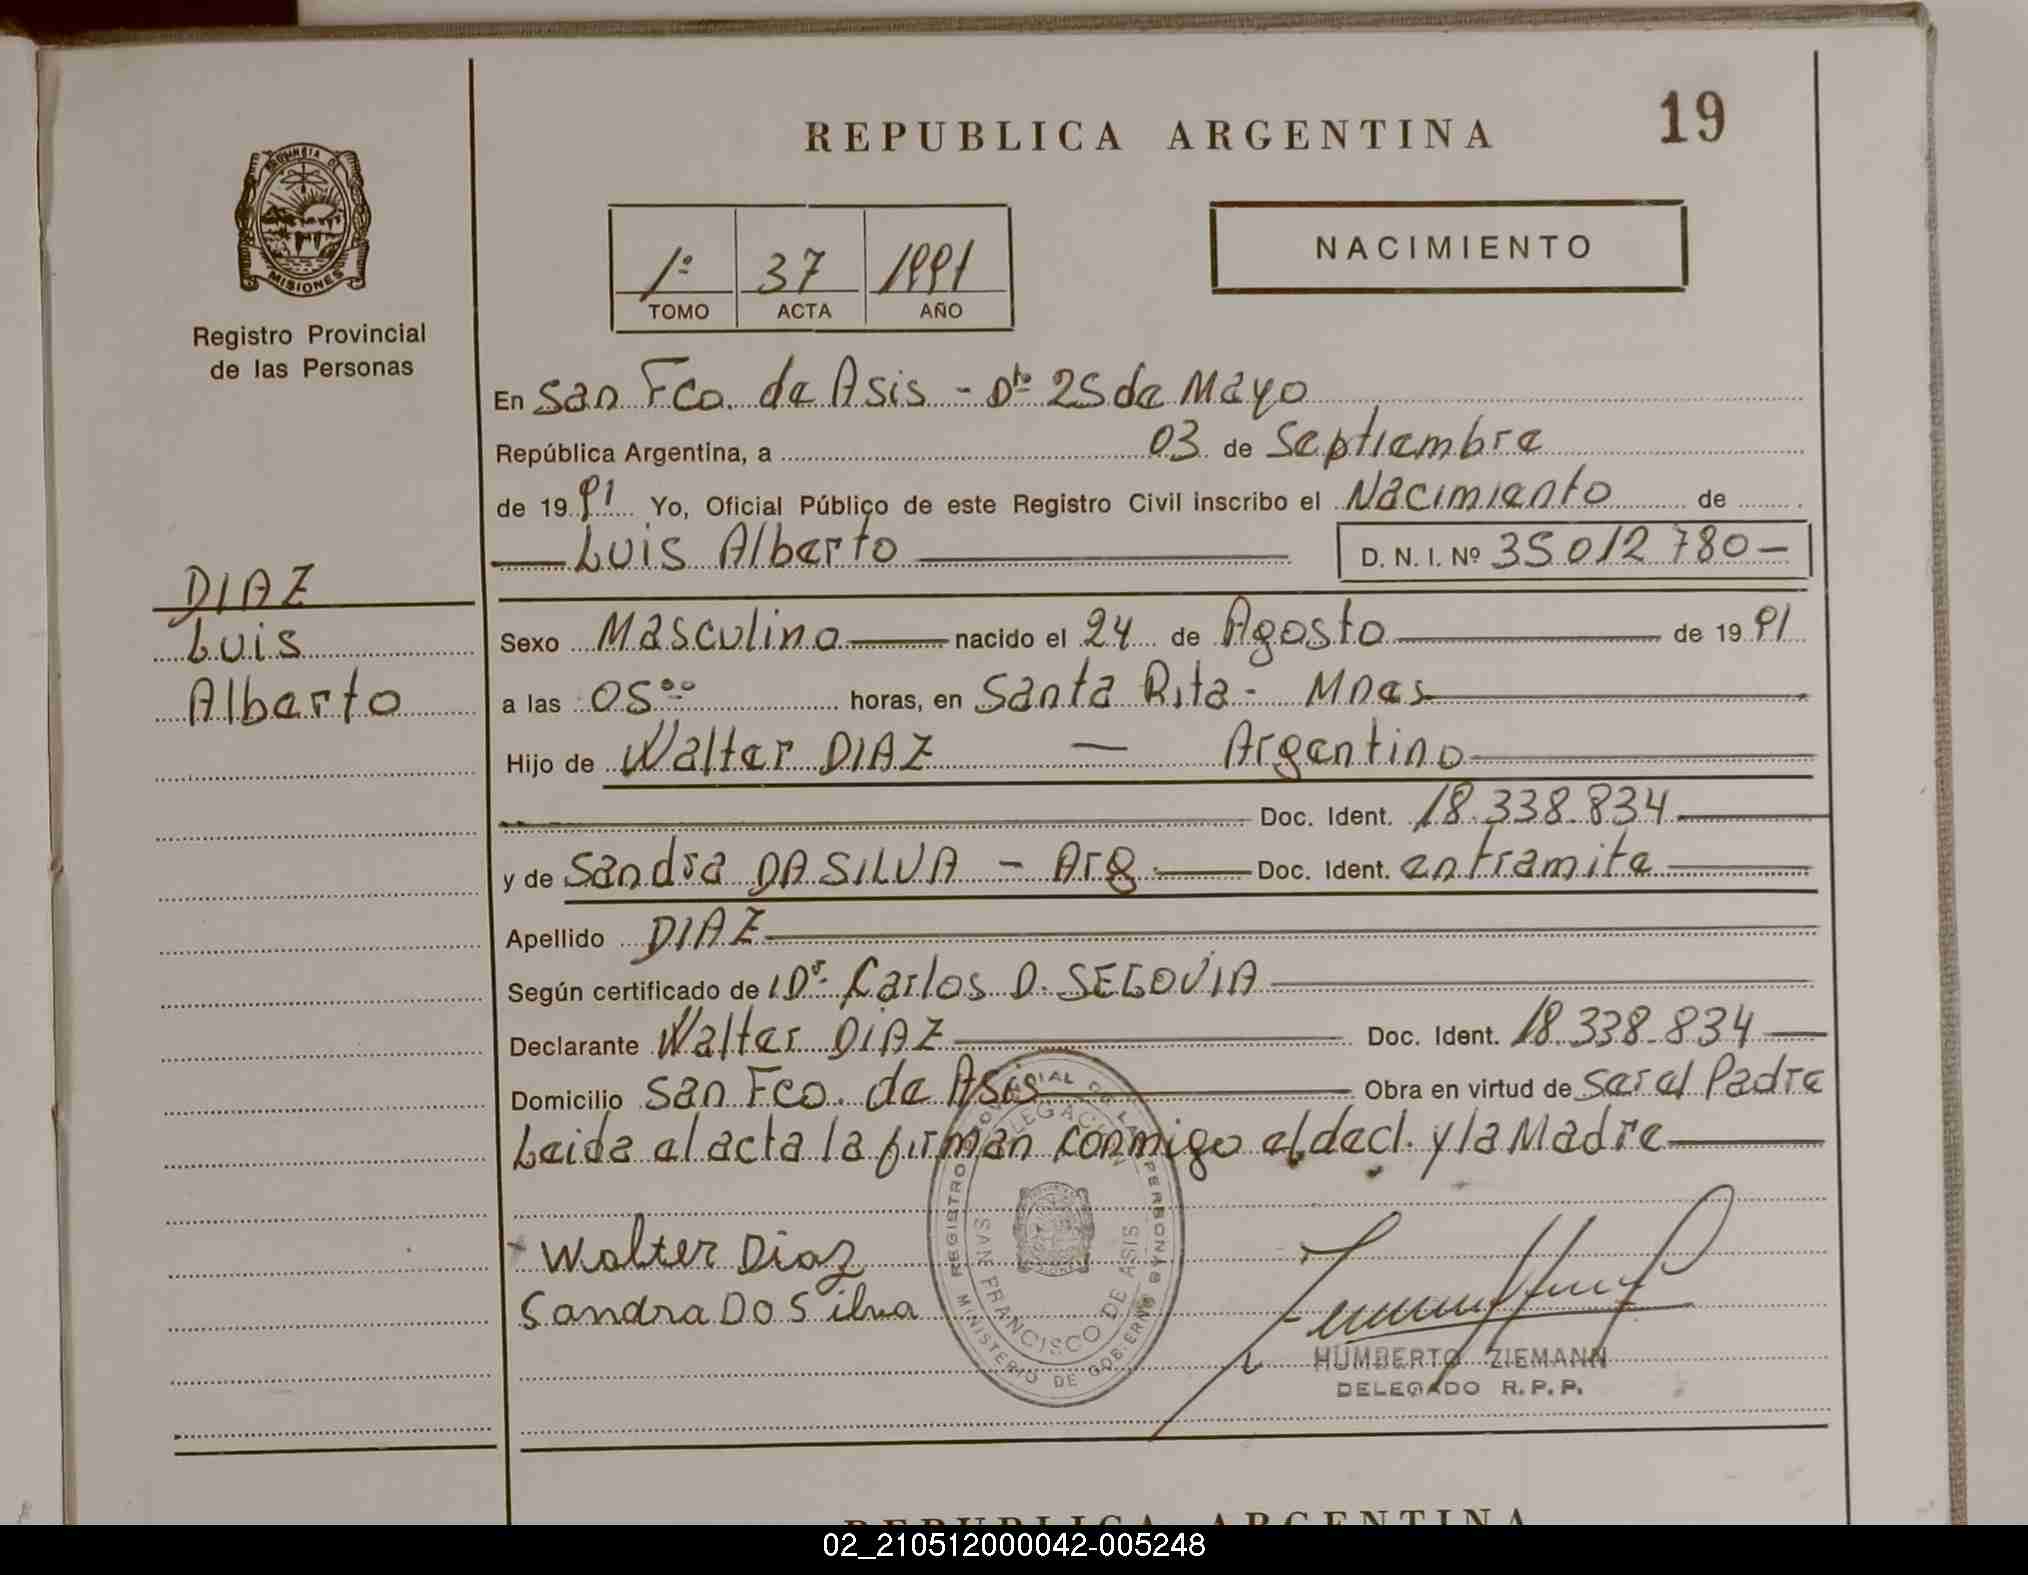 19
REPUBLICA ARGENTINA
PROVINCIA DE
MISIONES
Registro Provincial
de las Personas
1º 37 1991
TOMO ACTA AÑO
NACIMIENTO
En San Fco. de Asis - Dto 25 de Mayo
República Argentina, a 03 de Septiembre
de 1991 Yo, Oficial Público de este Registro Civil inscribo el Nacimiento de
Luis Alberto D. N. I. Nº 35012780-
DIAZ
Luis
Alberto
Sexo Masculino nacido el 24 de Agosto de 1991
a las 05ºº horas, en Santa Rita - Mnes
Hijo de Walter DIAZ - Argentino
Doc. Ident. 18.338.834
y de Sandra DA SILVA - Arg Doc. Ident. en tramite
Apellido DIAZ
Según certificado de Dr. Carlos D. SEGOVIA
Declarante Walter DIAZ Doc. Ident. 18.338.834
Domicilio San Fco. de Asis Obra en virtud de Ser el Padre
Leida el acta la firman conmigo el decl. y la Madre
Walter Diaz
Sandra Da Silva
REGISTRO PROVINCIAL DE LAS PERSONAS
MINISTERIO DE GOBIERNO
DELEGACION
SAN FRANCISCO DE ASIS
HUMBERTO ZIEMANN
DELEGADO R.P.P.
REPUBLICA ARGENTINA
02_210512000042-005248